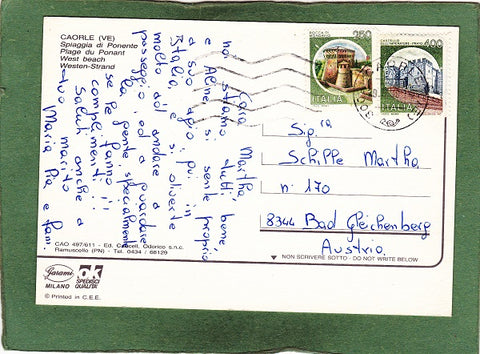 CAORLE (VE)
Spiaggia di Ponente
Plage du Ponant
West beach
Westen-Strand
Cara Martha,
noi stiamo tutti bene
e Aline, si sente proprio
a suo agio, qui in
Italia, e si diverte
molto ad andare a
passeggio, ed a guardare
la gente, specialmente
se le fanno i
complimenti!!
Saluti anche a
tuo marito
Maria Pia e fam.
250
ITALIA
400
ITALIA
Sig.ra
Schippe Martha
n° 170
8344 Bad Gleichenberg
Austria
CAO 497/611 - Ed. Odorico s.n.c.
Ramuscello (PN) - Tel. 0434 / 68129
▼ NON SCRIVERE SOTTO - DO NOT WRITE BELOW
Garami
MILANO
ok
SPEDISCI
QUALITÀ
© Printed in C.E.E.